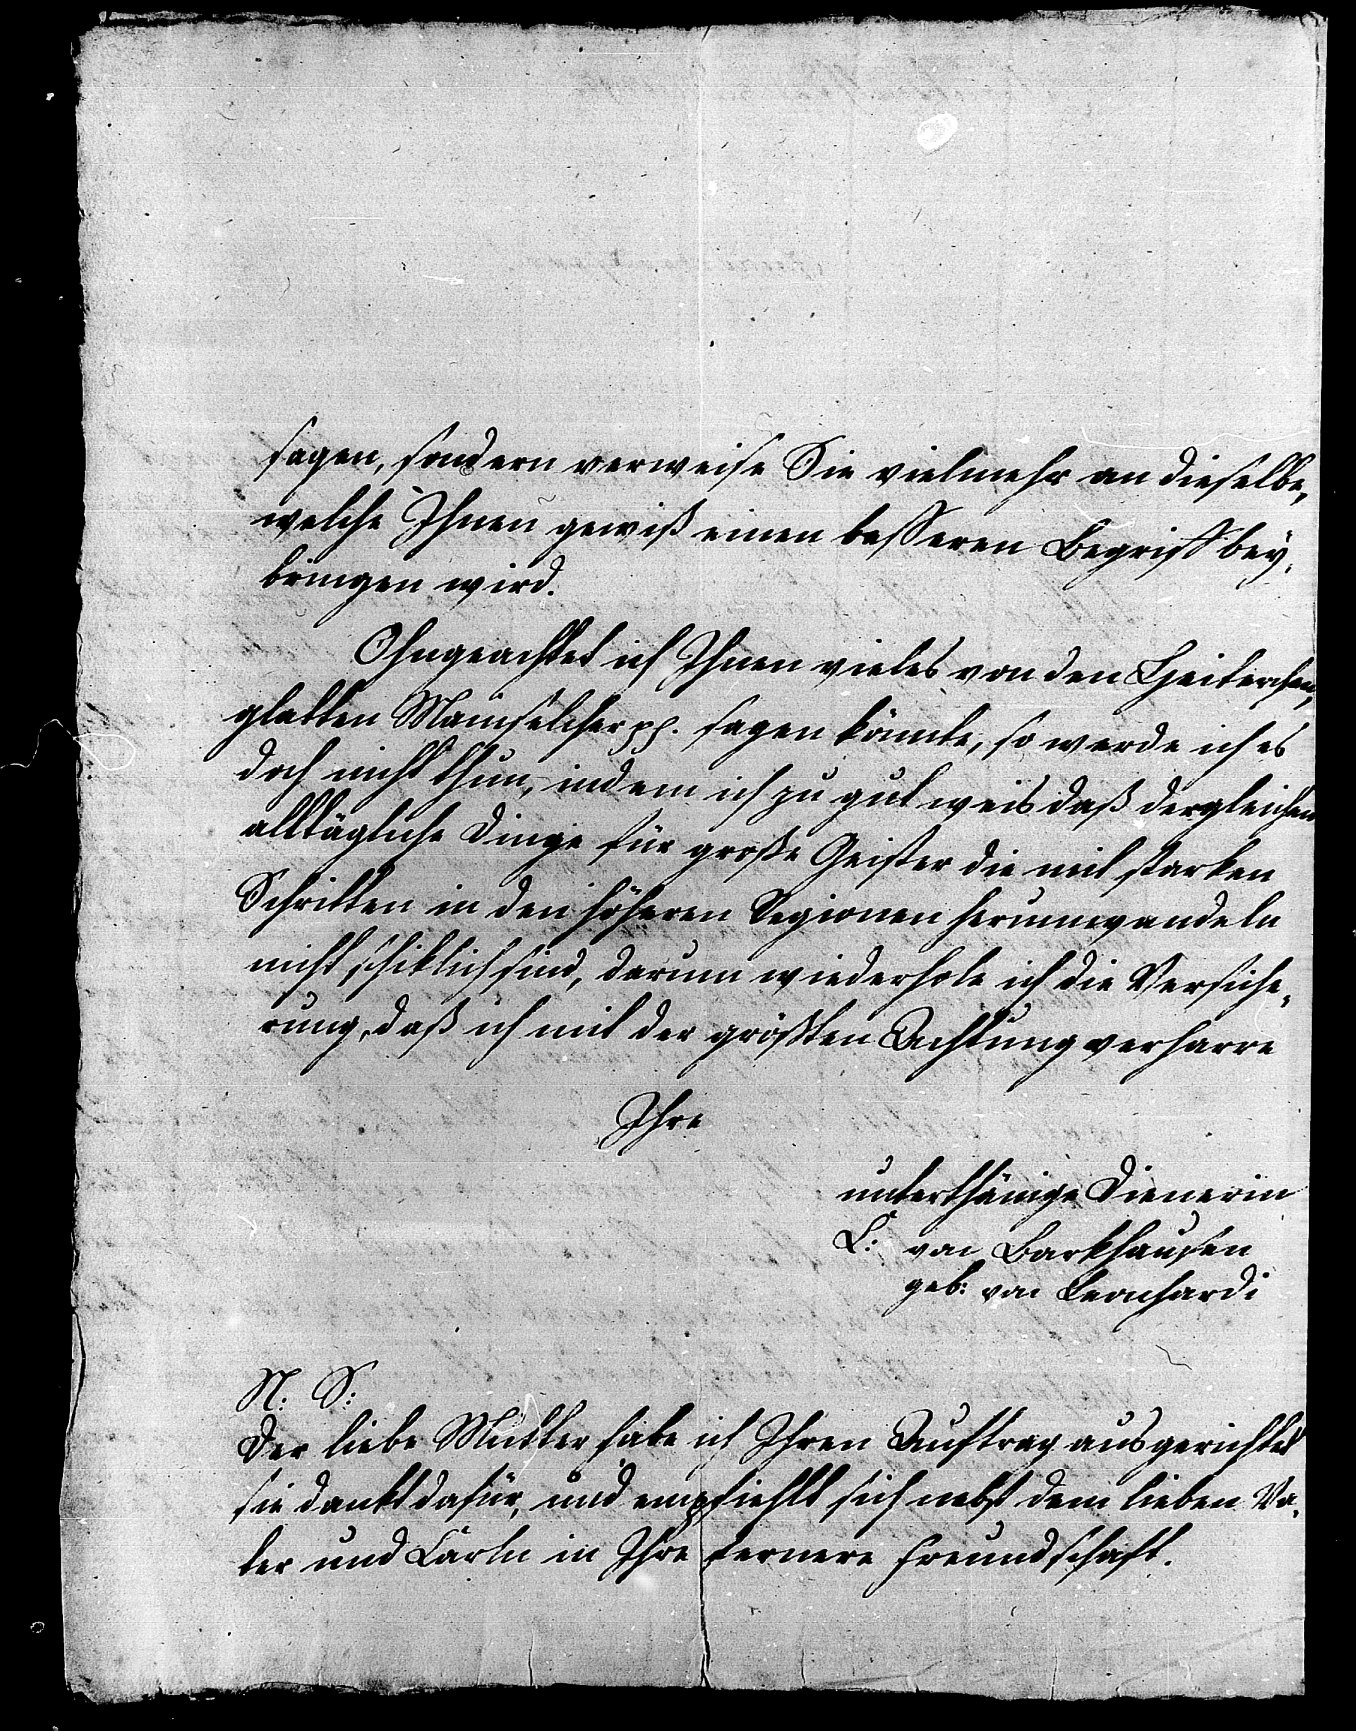 sagen, sondern verweise Sie vielmehr an dieselbe,
welche Ihnen gewiß einen besseren Begriff bey-
bringen wird.
Ohngeachtet ich Ihnen vieles von den
glatten pp. sagen könnte, so werde ich es
doch nicht thun, indem ich zu gut weis daß dergleichen
alltägliche Dinge für große Geister die mit starken
Schritten in den höheren Regionen herumwandeln
nicht schiklich sind, darum wiederhole ich die Versiche-
rung, daß ich mit der größten Achtung verharre
Ihre
unterthänige Dienerin
C: von Barkhausen
geb: von Leonhardi
N: S:
Der liebe Mutter habe ich Ihren Auftrag ausgerichtet
sie dankt dafür, und empfiehlt sich nebst dem lieben Va-
ter und Carln in Ihre fernere Freundschaft.